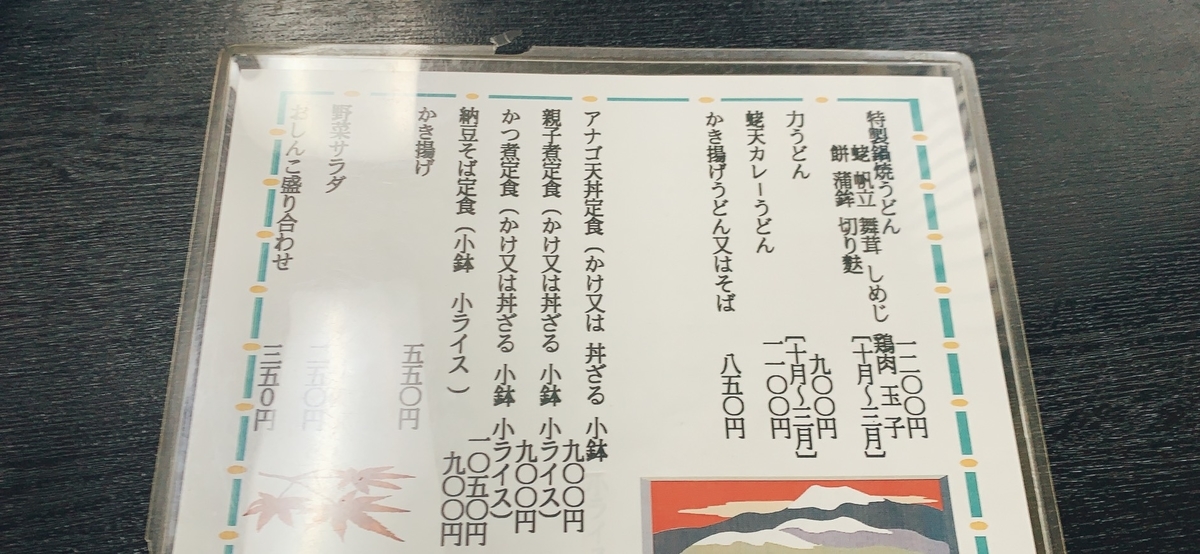 特製鍋焼うどん 一二〇〇円
蛯 帆立 舞茸 しめじ 鶏肉 玉子
餅 蒲鉾 切り麩 [十月〜三月]
力うどん 九〇〇円
[十月〜三月]
蛯天カレーうどん 一一〇〇円
かき揚げうどん又はそば 八五〇円
アナゴ天丼定食（かけ又は 丼ざる 小鉢
九〇〇円
親子煮定食（かけ又は丼ざる 小鉢 小ライス）
九〇〇円
かつ煮定食（かけ又は丼ざる 小鉢 小ライス）
一〇五〇円
納豆そば定食（小鉢 小ライス ）
九〇〇円
かき揚げ 五五〇円
野菜サラダ 二五〇円
おしんこ盛り合わせ 三五〇円